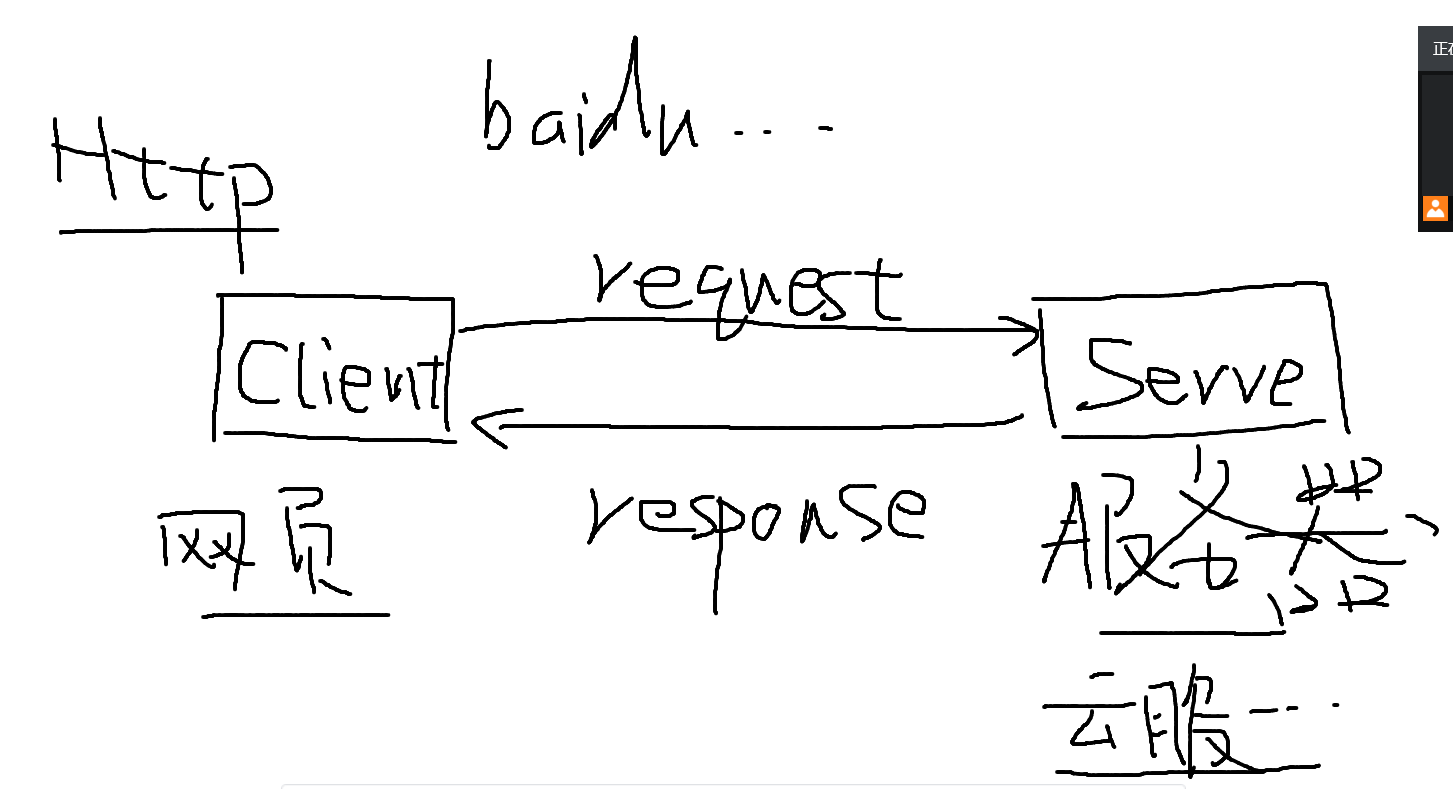 baidu ...
Http
request
Client
Serve
response
网页
服务器
云服...
正在